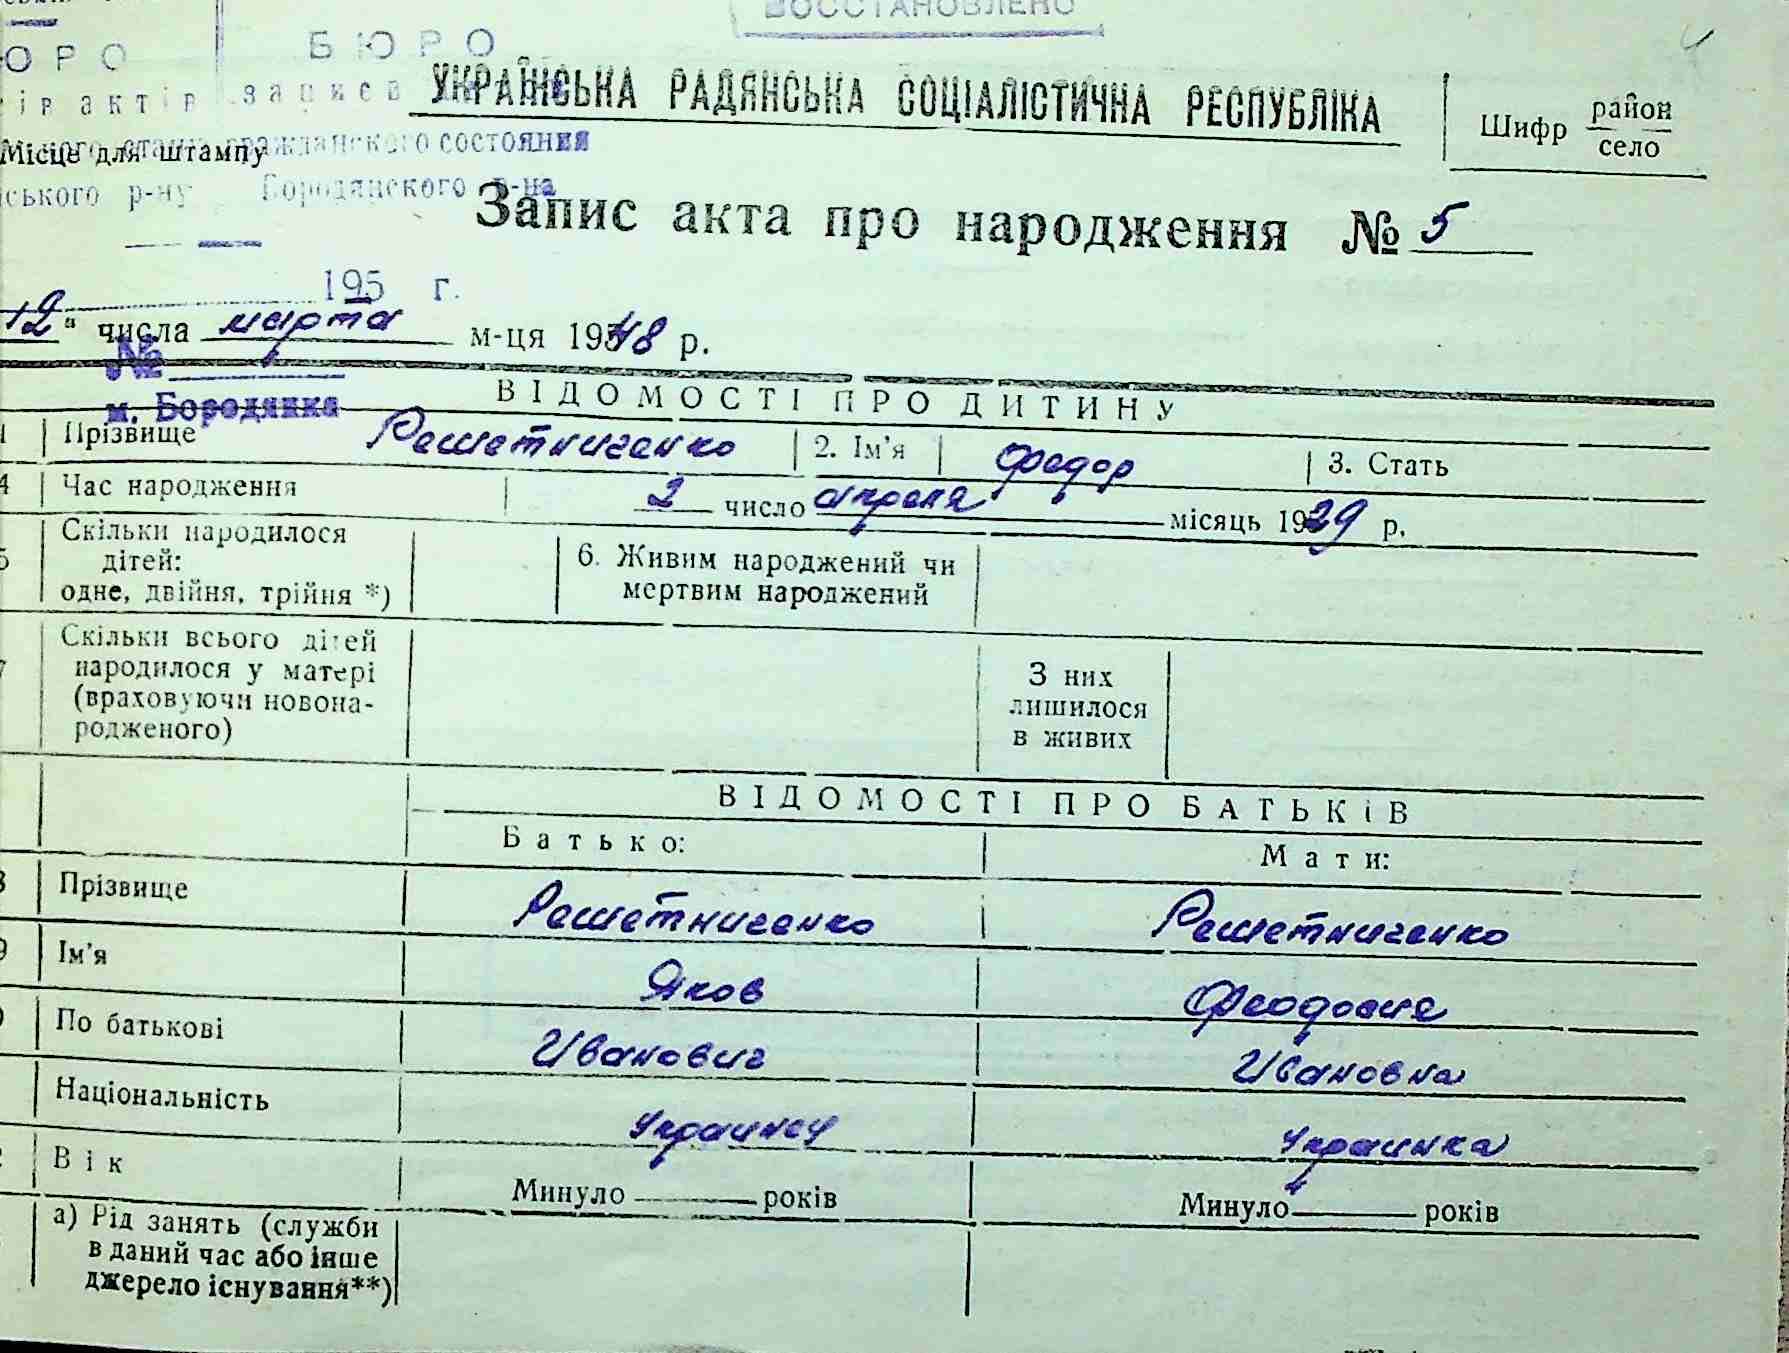 ВОССТАНОВЛЕНО
ОРО БЮРО
ів актів записів
УКРАЇНСЬКА РАДЯНСЬКА СОЦІАЛІСТИЧНА РЕСПУБЛІКА
Шифр район
село
Місце для штампу
стану гражданского состояния
ського р-ну Бородянского р-на
Запис акта про народження № 5
195 г.
12 " числа марта м-ця 1948 р.
№
м. Бородянка
ВІДОМОСТІ ПРО ДИТИНУ
1 Прізвище Решетниченко 2. Ім'я Федор 3. Стать
4 Час народження 2 число апреля місяць 1929 р.
5 Скільки народилося дітей: одне, двійня, трійня *)
6. Живим народжений чи мертвим народжений
7 Скільки всього дітей народилося у матері (враховуючи новона-
родженого)
З них лишилося в живих
ВІДОМОСТІ ПРО БАТЬКІВ
Батько: Мати:
8 Прізвище Решетниченко Решетниченко
9 Ім'я Яков Феодосия
По батькові Иванович Ивановна
Національність Украинец Украинка
Вік Минуло років Минуло років
а) Рід занять (служби
в даний час або інше
джерело існування**)